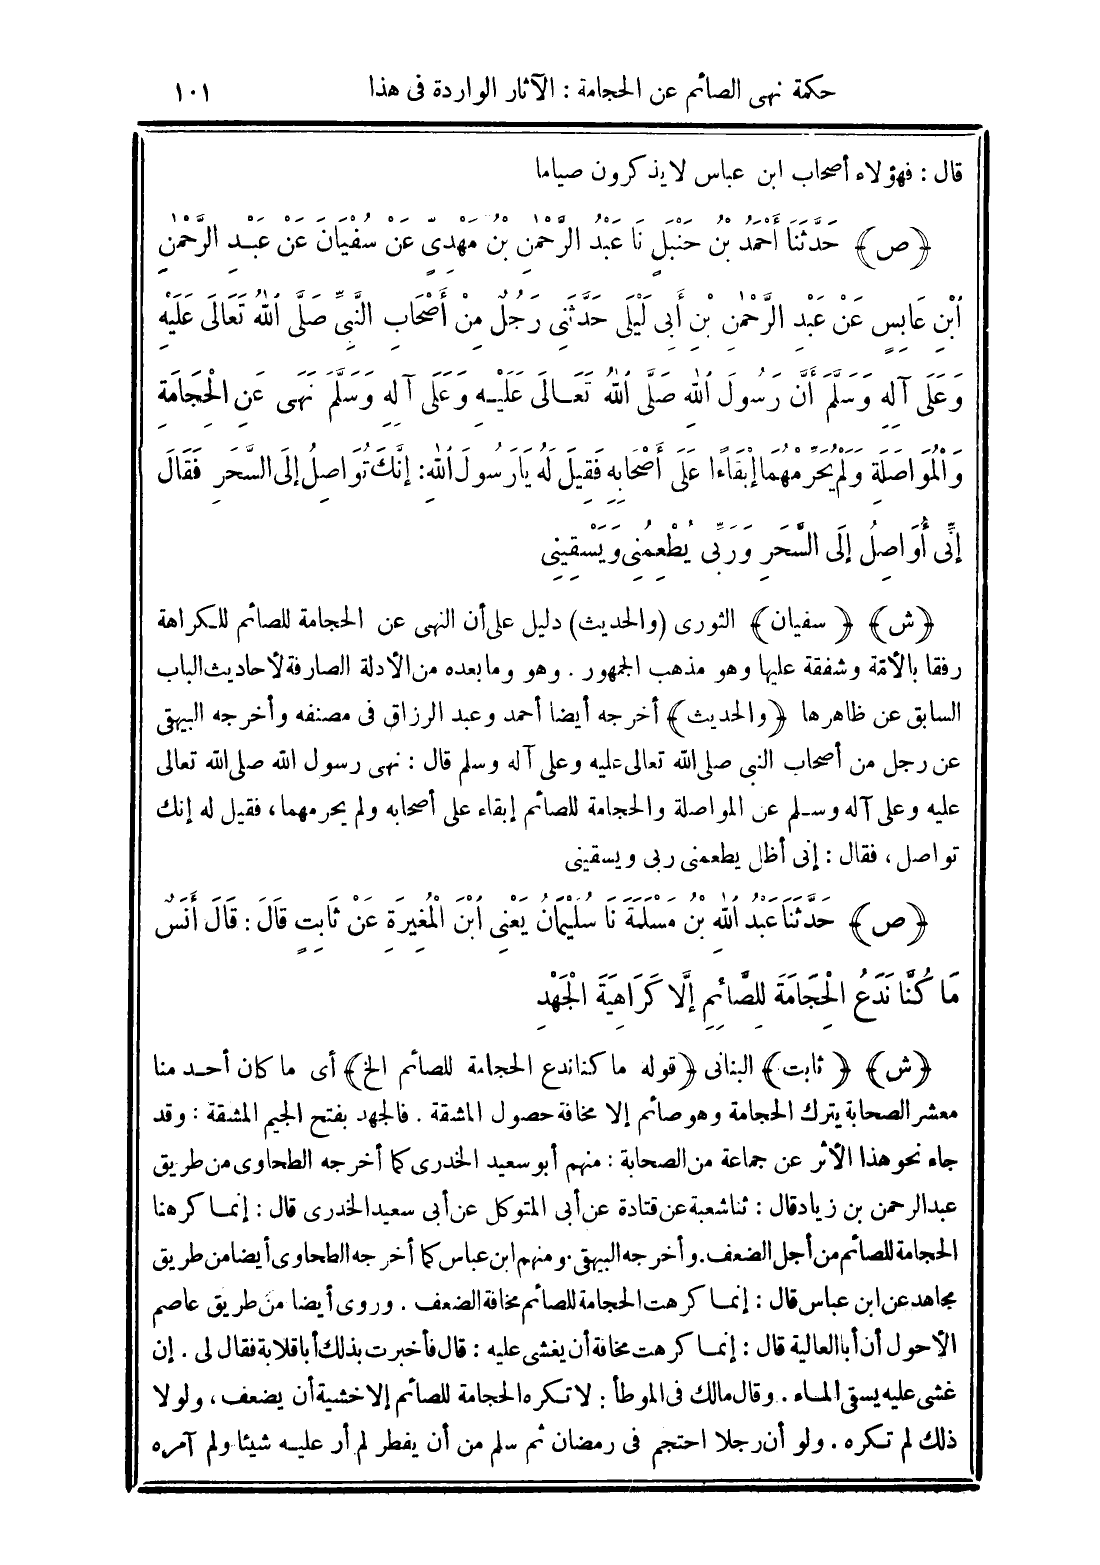 حكمة نهى الصائم عن الحجامة : الآثار الواردة فى هذا ١٠١
قال : فهؤلاء أصحاب ابن عباس لا يذكرون صياما
﴿ص﴾ حَدَّثَنَا أَحْمَدُ بْنُ حَنْبَلٍ نَا عَبْدُ الرَّحْمٰنِ بْنُ مَهْدِىٍّ عَنْ سُفْيَانَ عَنْ عَبْدِ الرَّحْمٰنِ
ابْنِ عَابِسٍ عَنْ عَبْدِ الرَّحْمٰنِ بْنِ أَبِى لَيْلَى حَدَّثَنِى رَجُلٌ مِنْ أَصْحَابِ النَّبِىِّ صَلَّى اللهُ تَعَالَى عَلَيْهِ
وَعَلَى آلِهِ وَسَلَّمَ أَنَّ رَسُولَ اللهِ صَلَّى اللهُ تَعَالَى عَلَيْهِ وَعَلَى آلِهِ وَسَلَّمَ نَهَى عَنِ الْحِجَامَةِ
وَالْمُوَاصَلَةِ وَلَمْ يُحَرِّمْهُمَا إِبْقَاءً عَلَى أَصْحَابِهِ فَقِيلَ لَهُ يَارَسُولَ اللهِ: إِنَّكَ تُوَاصِلُ إِلَى السَّحَرِ فَقَالَ
إِنِّى أُوَاصِلُ إِلَى السَّحَرِ وَرَبِّى يُطْعِمُنِى وَيَسْقِينِى
﴿ش﴾ ﴿سفيان﴾ الثورى (والحديث) دليل على أن النهى عن الحجامة للصائم للكراهة
رفقا بالأمة وشفقة عليها وهو مذهب الجمهور . وهو وما بعده من الأدلة الصارفة لأحاديث الباب
السابق عن ظاهرها ﴿والحديث﴾ أخرجه أيضا أحمد وعبد الرزاق فى مصنفه وأخرجه البيهقى
عن رجل من أصحاب النبى صلى الله تعالى عليه وعلى آله وسلم قال : نهى رسول الله صلى الله تعالى
عليه وعلى آله وسلم عن المواصلة والحجامة للصائم إبقاء على أصحابه ولم يحرمهما، فقيل له إنك
تواصل، فقال : إنى أظل يطعمنى ربى ويسقينى
﴿ص﴾ حَدَّثَنَا عَبْدُ اللهِ بْنُ مَسْلَمَةَ نَا سُلَيْمَانُ يَعْنِى ابْنَ الْمُغِيرَةِ عَنْ ثَابِتٍ قَالَ : قَالَ أَنَسٌ
مَا كُنَّا نَدَعُ الْحِجَامَةَ لِلصَّائِمِ إِلَّا كَرَاهِيَةَ الْجَهْدِ
﴿ش﴾ ﴿ثابت﴾ البنانى ﴿قوله ما كنا ندع الحجامة للصائم الخ﴾ أى ما كان أحد منا
معشر الصحابة يترك الحجامة وهو صائم إلا مخافة حصول المشقة . فالجهد بفتح الجيم المشقة : وقد
جاء نحو هذا الأثر عن جماعة من الصحابة : منهم أبو سعيد الخدرى كما أخرجه الطحاوى من طريق
عبد الرحمن بن زياد قال : ثنا شعبة عن قتادة عن أبى المتوكل عن أبى سعيد الخدرى قال : إنما كرهنا
الحجامة للصائم من أجل الضعف. وأخرجه البيهقى . ومنهم ابن عباس كما أخرجه الطحاوى أيضا من طريق
مجاهد عن ابن عباس قال : إنما كرهت الحجامة للصائم مخافة الضعف . وروى أيضا من طريق عاصم
الأحول أن أبا العالية قال : إنما كرهت مخافة أن يغشى عليه : قال فأخبرت بذلك أبا قلابة فقال لى . إن
غشى عليه يسقى الماء . وقال مالك فى الموطأ : لا تكره الحجامة للصائم إلا خشية أن يضعف، ولولا
ذلك لم تكره . ولو أن رجلا احتجم فى رمضان ثم سلم من أن يفطر لم أر عليه شيئا ولم آمره